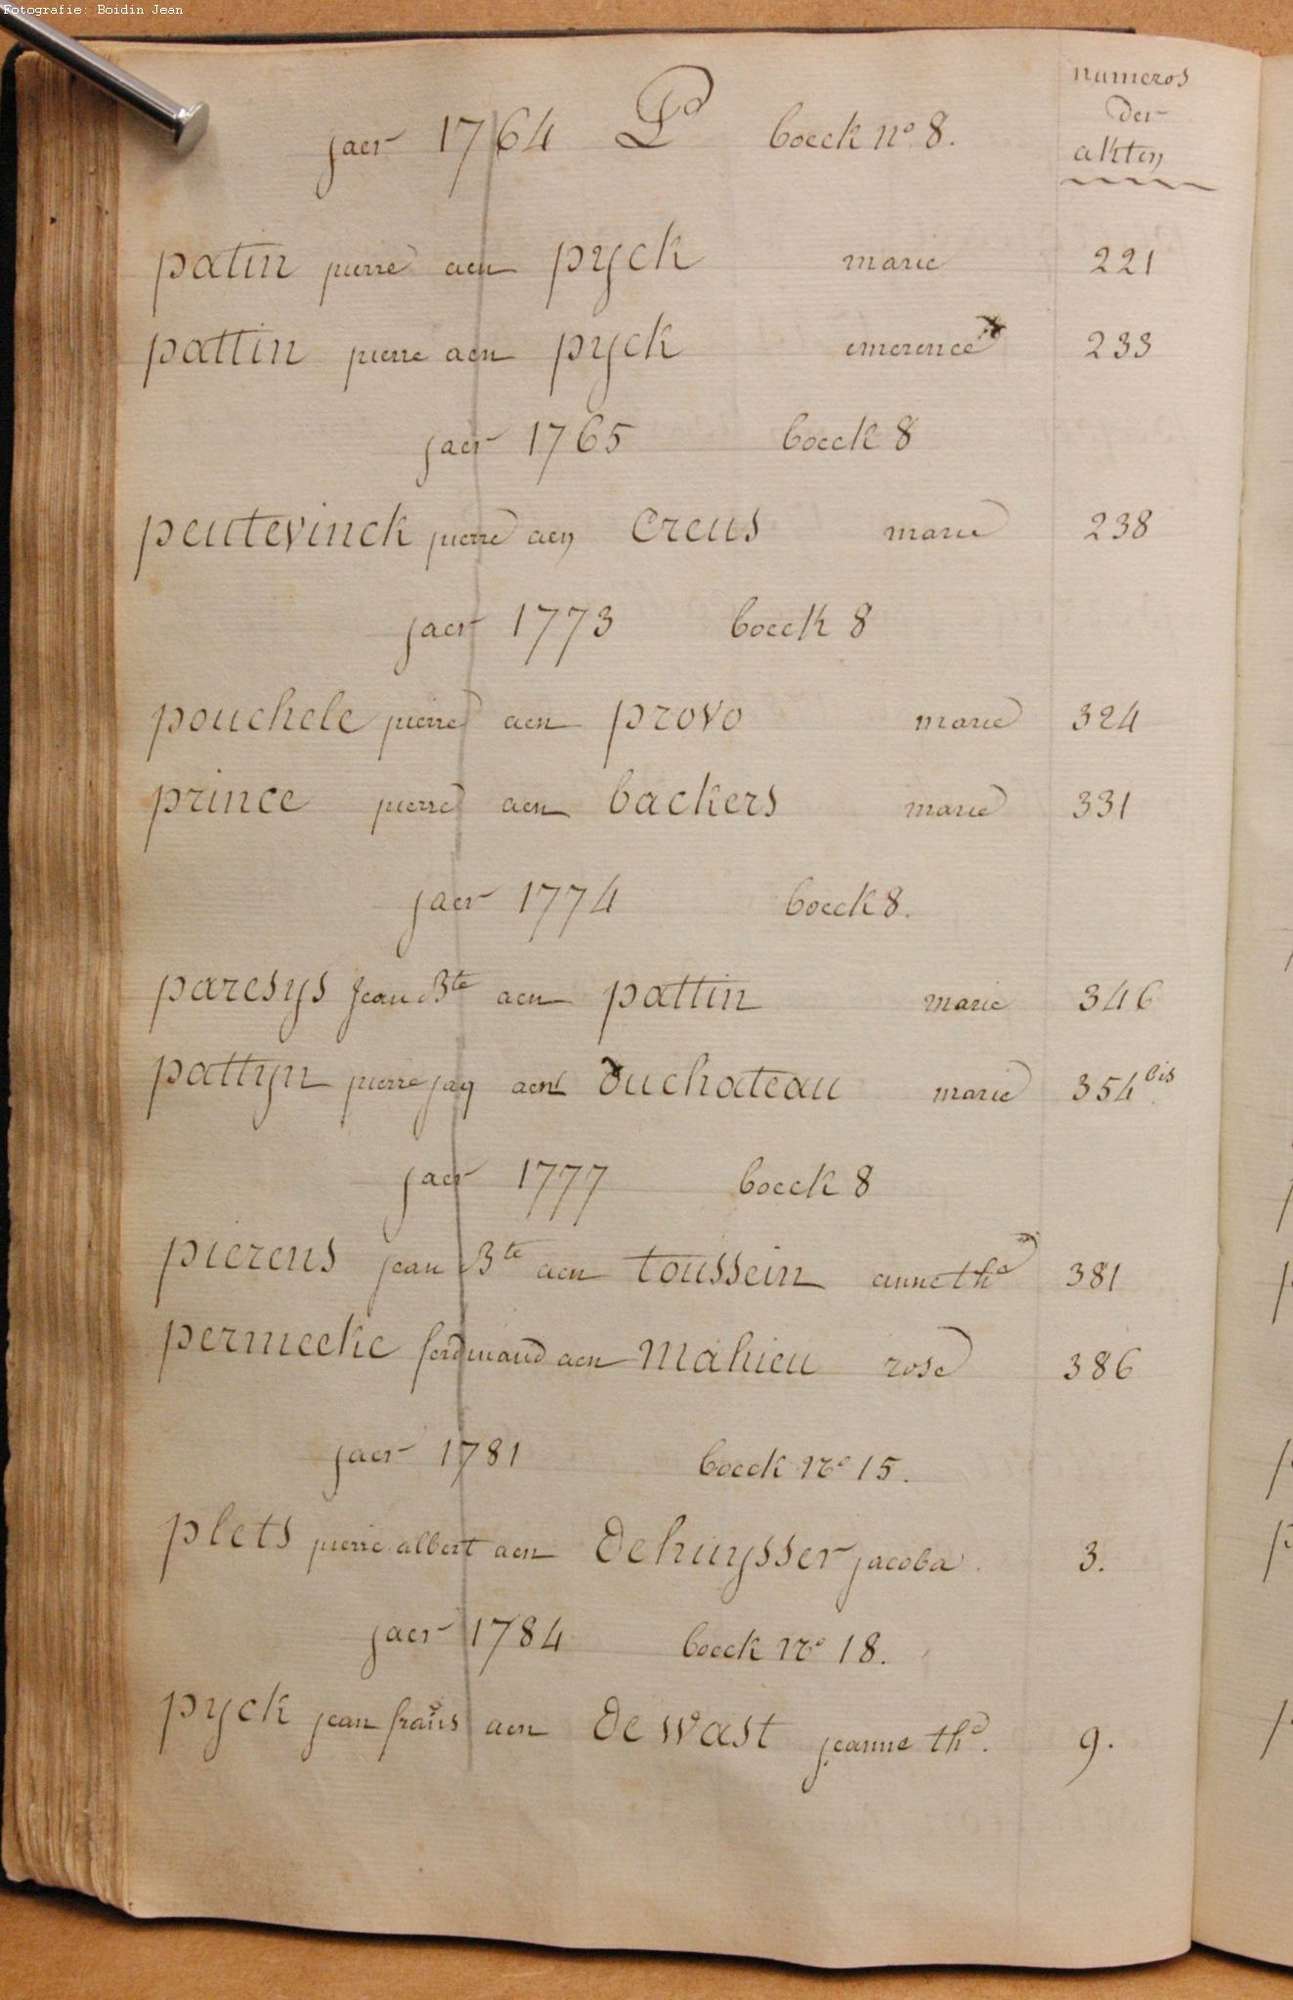 Fotografie: Boidin Jean
numeros
der
akten
jaer 1764 P boeck n° 8.
patin pierre aen pyck marie 221
pattin pierre aen pyck emerence 233
jaer 1765 boeck 8
peutevinck pierre aen creus marie 238
jaer 1773 boeck 8
pouchele pierre aen provo marie 324
prince pierre aen backers marie 331
jaer 1774 boeck 8.
paresys Jean Bte aen pattin marie 346
pattyn pierre jaq aen duchateau marie 354 bis
jaer 1777 boeck 8
pierens jean Bte aen toussein anne the 381
permeeke ferdinand aen mahieu rose 386
jaer 1781 boeck n° 15.
plets pierre albert aen Dehuysser jacoba 3.
jaer 1784 boeck n° 18.
pyck jean frañs aen De wast jeanne the. 9.